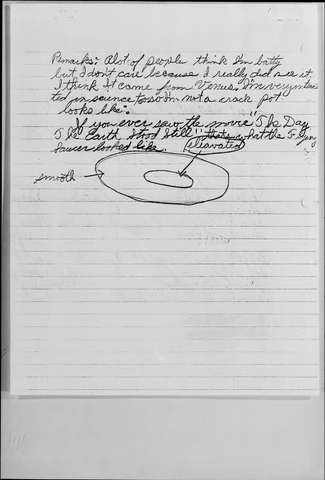 Remarks: Alot of people think I'm batty
but I don't care because I really did see it.
I think It came from Venus. I'm very interes
ted in science too so I'm not a crack pot
looks like:
If you ever saw the movie "The Day
The Earth Stood Still" thats what the Flying
Saucer looked like.
(elavated)
smooth